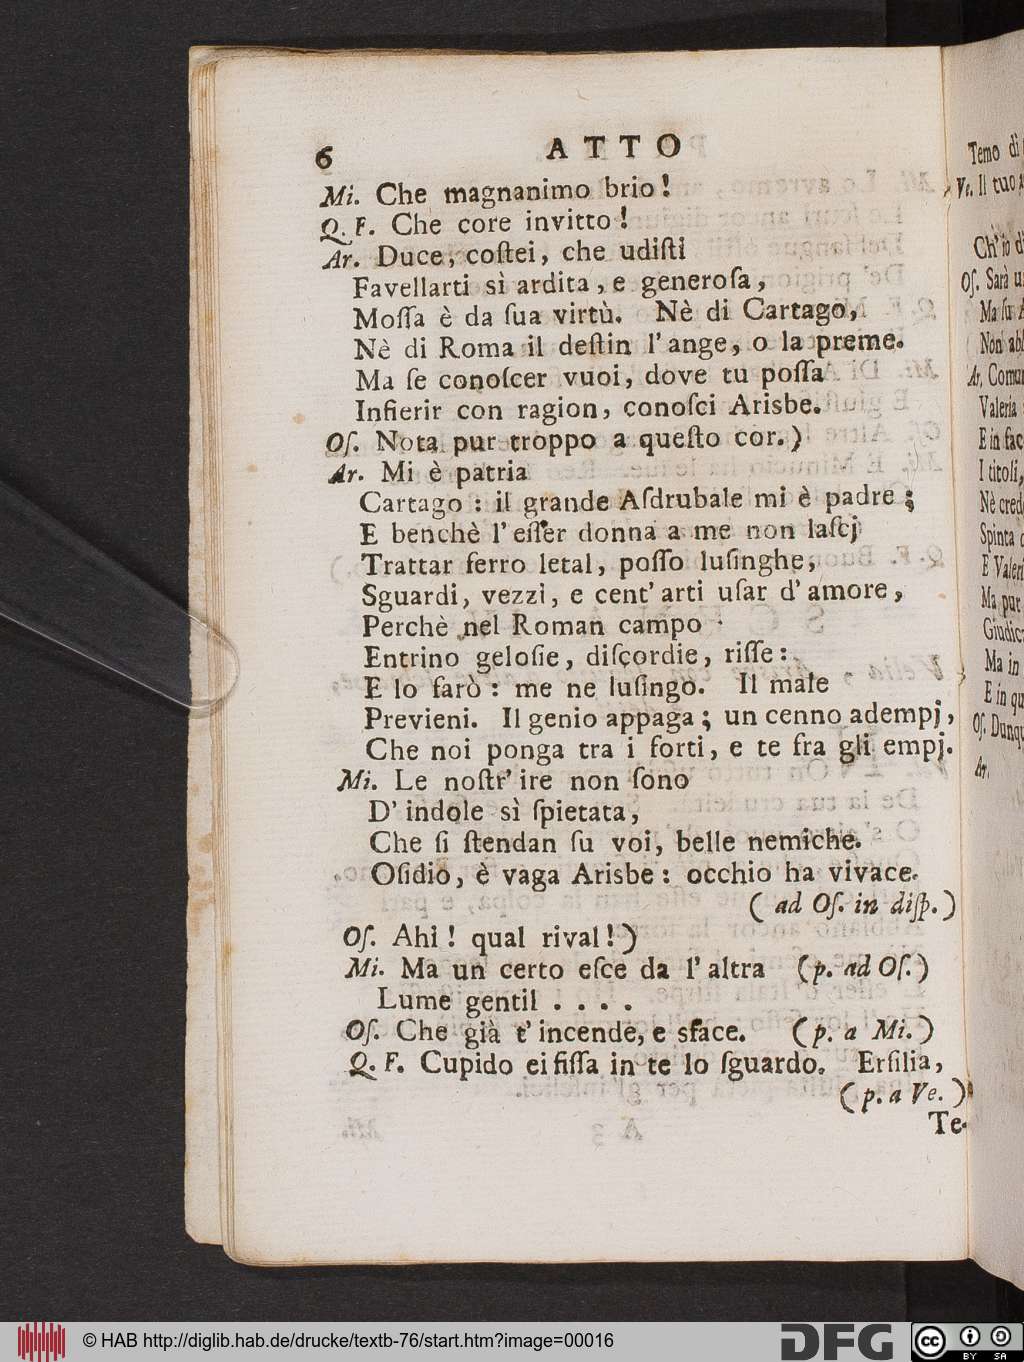 6 ATTO
Mi. Che magnanimo brio!
Q. F. Che core invitto!
Ar. Duce, coſtei, che udiſti
Favellarti sì ardita, e generoſa,
Moſſa è da ſua virtù. Nè di Cartago,
Nè di Roma il deſtin l'ange, o la preme.
Ma ſe conoſcer vuoi, dove tu poſſa
Infierir con ragion, conoſci Arisbe.
Oſ. Nota pur troppo a queſto cor.)
Ar. Mi è patria
Cartago: il grande Aſdrubale mi è padre;
E benchè l'eſſer donna a me non laſcj
Trattar ferro letal, poſſo luſinghe,
Sguardi, vezzi, e cent'arti uſar d'amore,
Perchè nel Roman campo
Entrino geloſie, diſcordie, riſſe:
E lo farò: me ne luſingo. Il male
Previeni. Il genio appaga; un cenno adempj,
Che noi ponga tra i forti, e te fra gli empj.
Mi. Le noſtr'ire non ſono
D'indole sì ſpietata,
Che ſi ſtendan ſu voi, belle nemiche.
Oſidio, è vaga Arisbe: occhio ha vivace.
(ad Oſ. in diſp.)
Oſ. Ahi! qual rival!)
Mi. Ma un certo eſce da l'altra (p. ad Oſ.)
Lume gentil....
Oſ. Che già t'incende, e sface. (p. a Mi.)
Q. F. Cupido ei fiſſa in te lo ſguardo. Erſilia,
(p. a Ve.)
Te-
Temo dì
Ve. Il tuo
Ch'io d
Oſ. Sarà u
Ma ſu
Non ab
Ar. Comu
Valeria
E in fac
I titoli,
Nè cred
Spinta
E Valeri
Ma pur
Giudic
Ma in
E in qu
Oſ. Dunqu
Ar.
© HAB http://diglib.hab.de/drucke/textb-76/start.htm?image=00016
DFG
cc BY SA